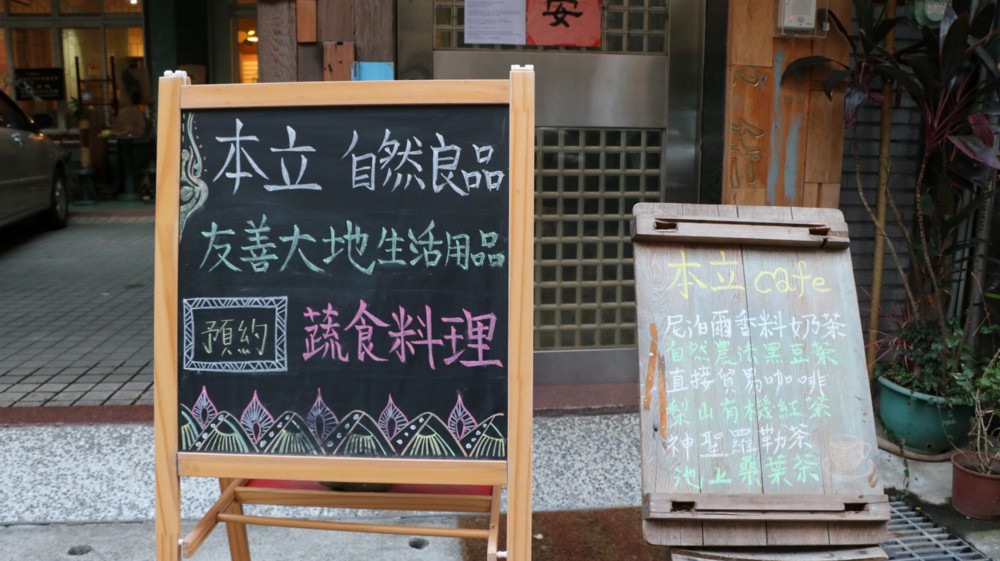 安
本立 自然良品
友善大地生活用品
預約 蔬食料理
本立 cafe
尼泊爾香料奶茶
自然農法黑豆茶
直接貿易咖啡
梨山有機紅茶
神聖羅勒茶
池上桑葉茶